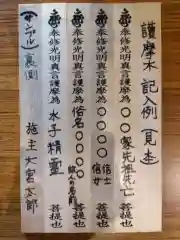 護摩木 記入例 (見本)
奉修光明真言護摩為 〇〇〇家先祖代々 菩提也
奉修光明真言護摩為 〇〇〇〇〇〇 信士 信女 菩提也
奉修光明真言護摩為 俗名〇〇〇〇 菩提也
奉修光明真言護摩為 水子精霊 菩提也
(サンプル) 裏側
施主 大宮太郎